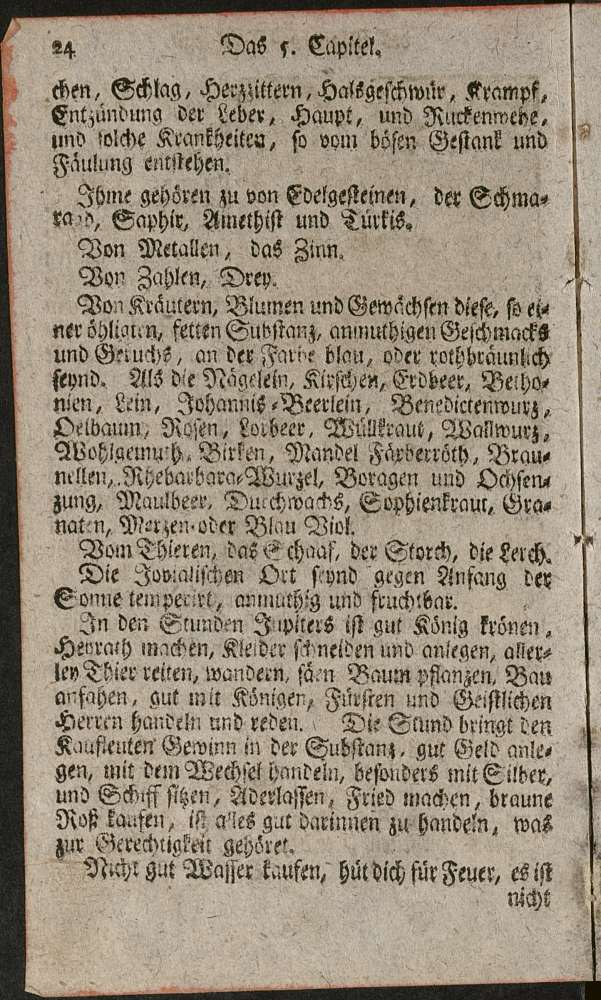 24 Das 5. Capitel.
chen, Schlag, Herzzittern, Halsgeschwür, Krampf,
Entzündung der Leber, Haupt, und Ruckenwehe,
und solche Krankheiten, so vom bösen Gestank und
Fäulung entstehen.
Ihme gehören zu von Edelgesteinen, der Schma⸗
ragd, Saphir, Amethist und Türkis.
Von Metallen, das Zinn.
Von Zahlen, Drey.
Von Kräutern, Blumen und Gewächsen diese, so ei⸗
ner öhligten, fetten Substanz, anmuthigen Geschmacks
und Geruchs, an der Farbe blau, oder rothbräunlich
seynd. Als die Nägelein, Kirschen, Erdbeer, Betho⸗
nien, Lein, Johannis⸗Beerlein, Benedictenwurz,
Oelbaum, Rosen, Lorbeer, Wüllkraut, Wallwurz,
Wohlgemuth, Birken, Mandel Färberröth, Brau⸗
nellen, Rhebarbara⸗Wurzel, Boragen und Ochsen⸗
zung, Maulbeer, Durchwachs, Sophienkraut, Gra⸗
naten, Merzen⸗oder Blau Viol.
Vom Thieren, das Schaaf, der Storch, die Lerch.
Die Jovialischen Ort seynd gegen Anfang der
Sonne temperirt, anmuthig und fruchtbar.
In den Stunden Jupiters ist gut König krönen,
Heyrath machen, Kleider schneiden und anlegen, aller⸗
ley Thier reiten, wandern, säen Baum pflanzen, Bau
anfahen, gut mit Königen, Fürsten und Geistlichen
Herren handeln und reden. Die Stund bringt den
Kaufleuten Gewinn in der Substanz, gut Geld anle⸗
gen, mit dem Wechsel handeln, besonders mit Silber,
und Schiff sitzen, Aderlassen, Fried machen, braune
Roß kaufen, ist alles gut darinnen zu handeln, was
zur Gerechtigkeit gehöret.
Nicht gut Wasser kaufen, hüt dich für Feuer, es ist
nicht